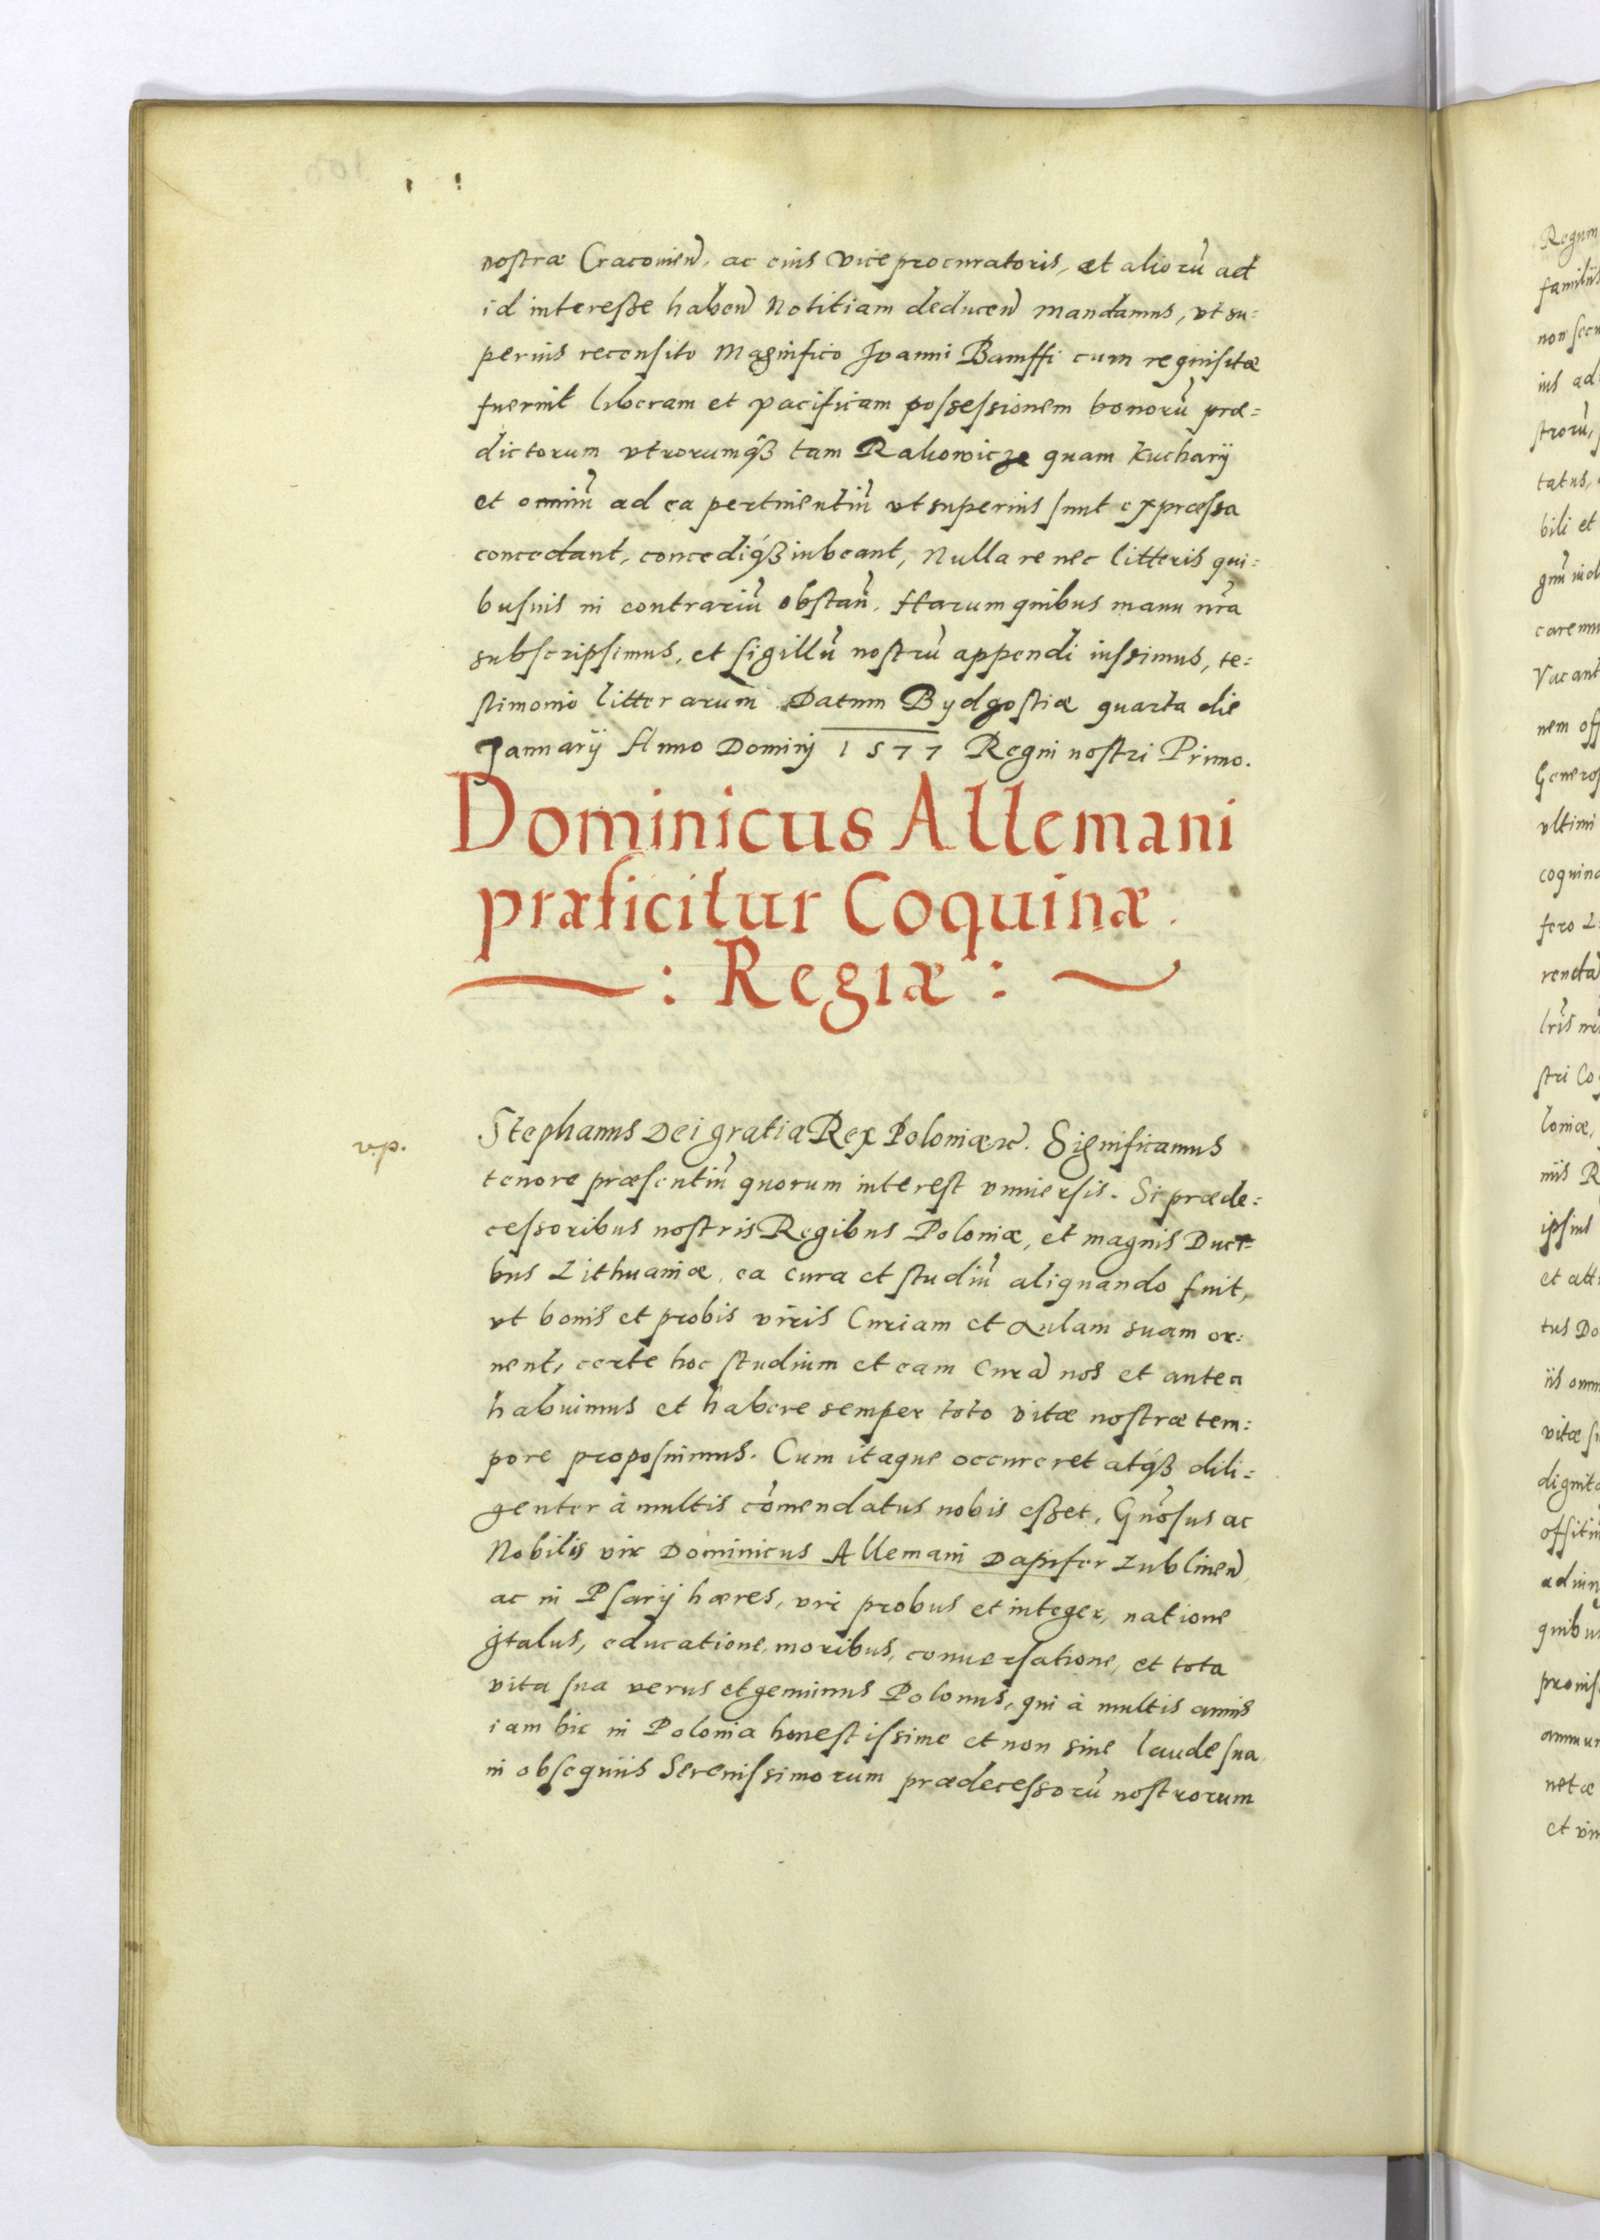 nostræ Cracovien̄. ac eius Vice procuratoris, et alioru᷈ ad
id intereße haben̄ Notitiam deducen̄ mandamus, vt su:
perius recensito Magnifico Joanni Banffi cum requisitæ
fuerint liberam et pacificam possessionem bonoru᷈ præ=
dictorum vtrorumqß tam Rakowicze quam Kucharÿ
et omniu᷈ ad ea pertinentiu᷈ vt superius sunt expræssa
concedant, concediqß iubeant, Nulla re nec litteris qui:
busuis in contrariu᷈ obstan̄. Harum quibus manu nr̄a
subscripsimus, et sigillu᷈ nostru᷈ appendi iussimus, te:
stimonio litterarum. Datum Bydgostiæ quarta die
Januarÿ Anno Dominj 1577 Regni nostri Primo.
Dominicus Allemani
præficitur Coquinæ.
: Regiæ :
v.p.
Stephanus Dei gratia Rex Poloniæ etc̄. Significamus
tenore præsentiu᷈ quorum interest vniuersis. Si præde:
cessoribus nostris Regibus Poloniæ, et magnis Duci-
bus Lithuaniæ, ea cura et studiu᷈ aliquando fuit,
vt bonis et probis viris Curiam et Aulam suam or:
nent, certe hoc studium et eam Curā nos et antea
habuimus et habere semper toto vitæ nostræ tem:
pore proposuimus. Cum itaque occurreret atqß dili=
genter à multis co᷈mendatus nobis eßet, Gn̄osus ac
Nobilis vir Dominicus Allemani Dapifer Lublinen̄,
ac in Psarÿ hæres, vir probus et integer, natione
Italus, educatione, moribus, conuersatione, et tota
vita sua verus et genuinus Polonus, qui à multis annis
iam hic in Polonia honestissime et non sine laude sua
in obsequiis Serenissimorum prædecessoru᷈ nostrorum